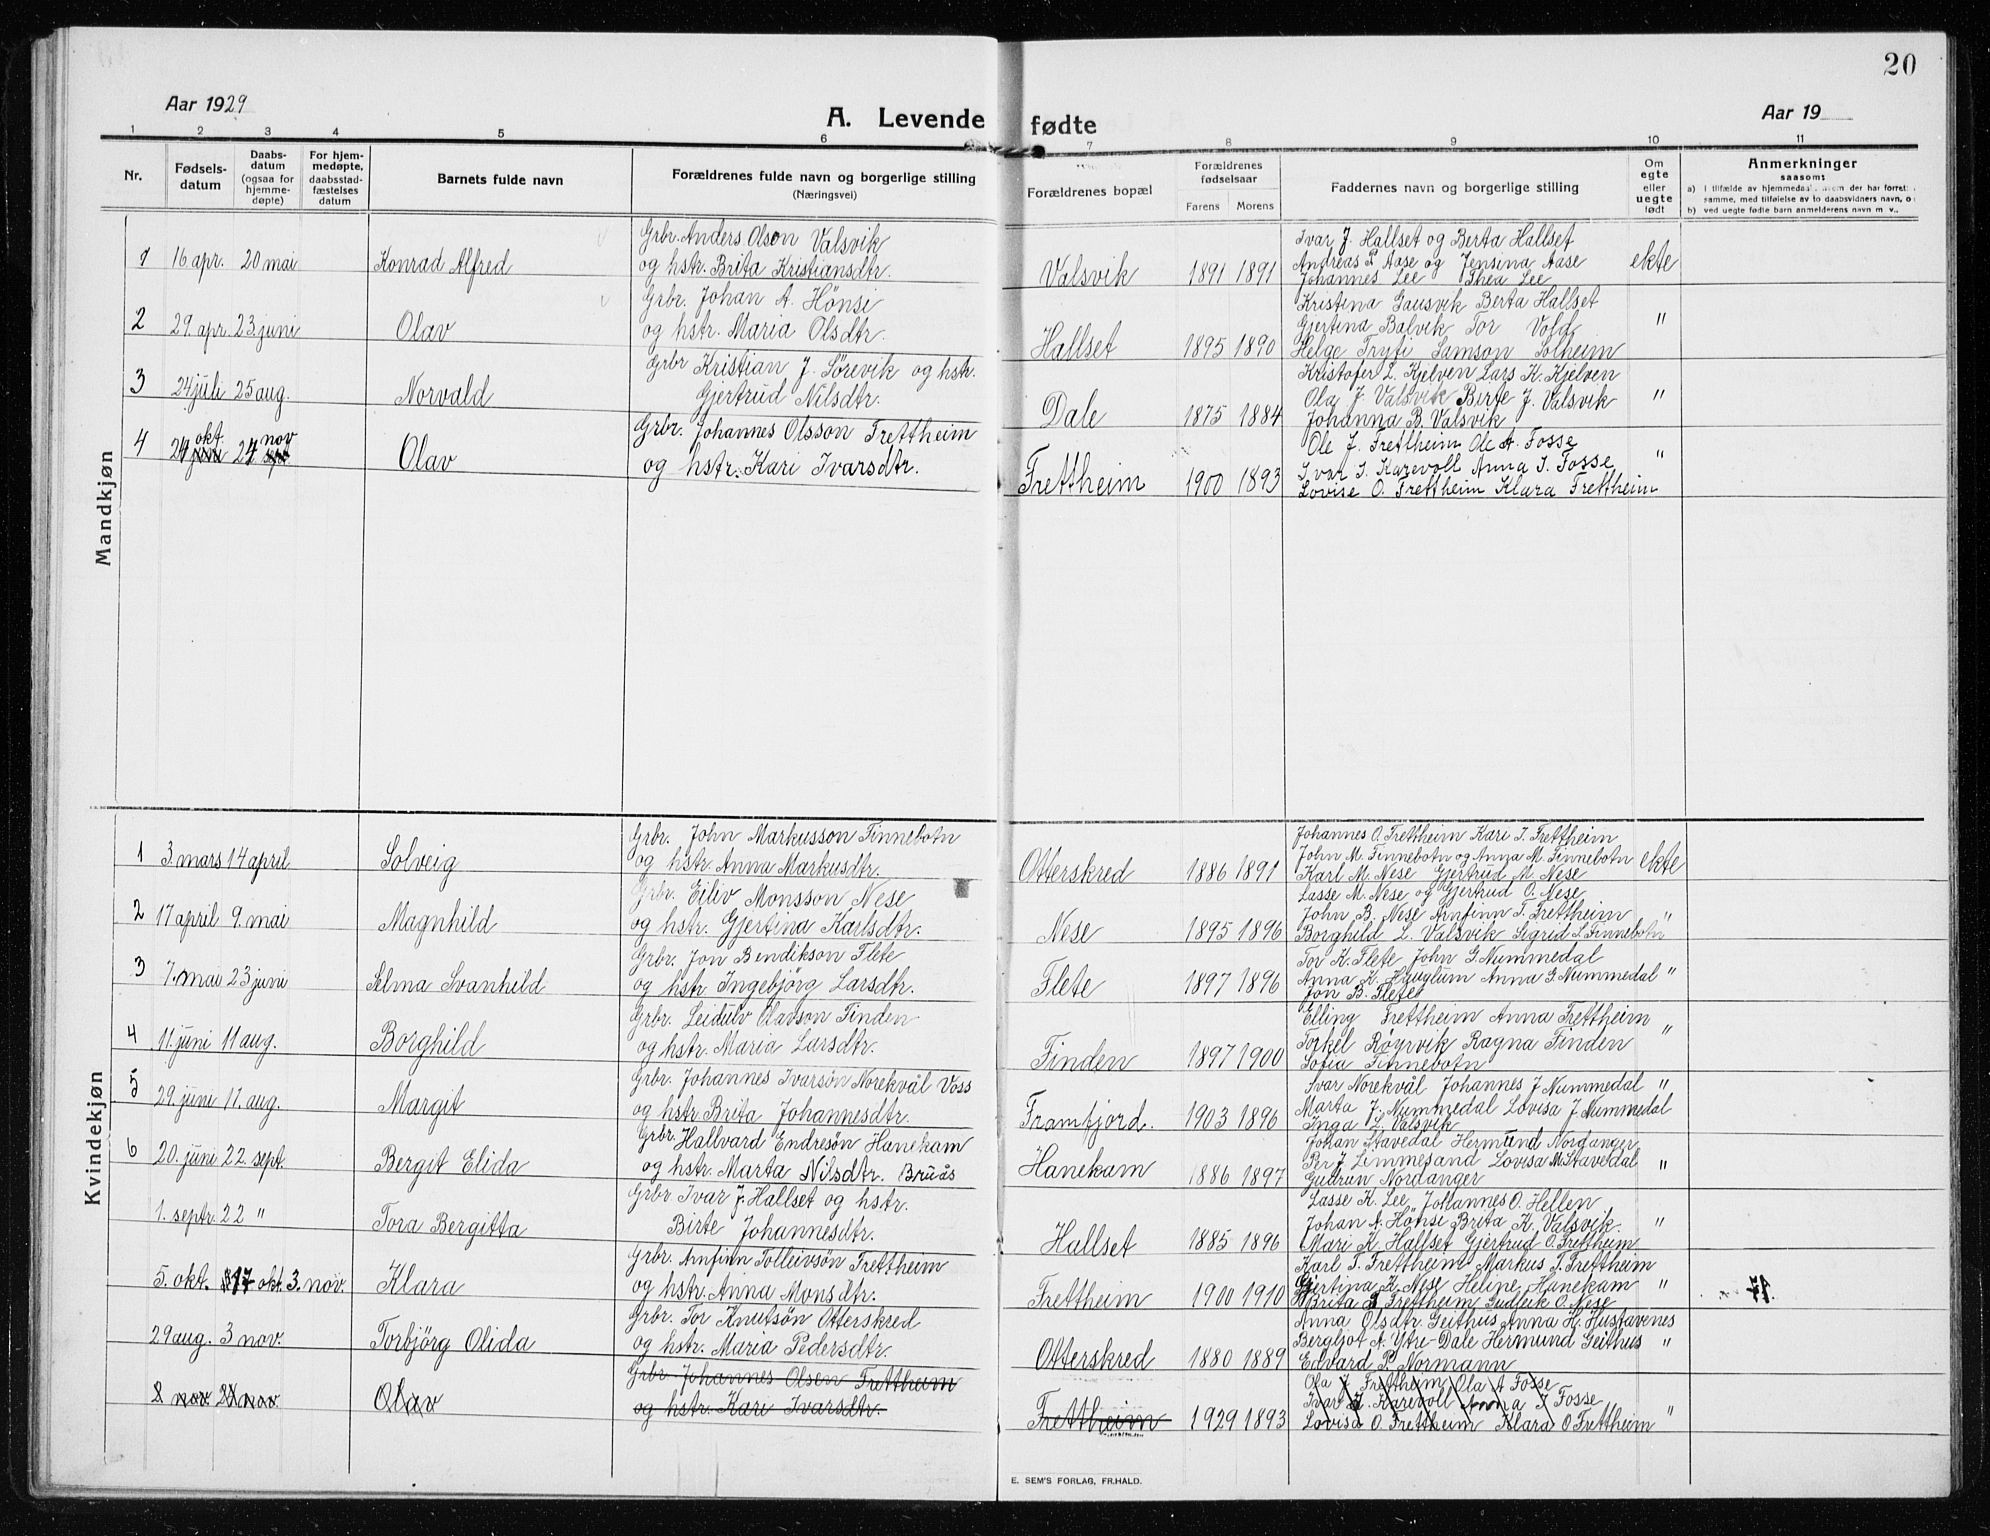 20
Aar 1929
A. Levende fødte
Aar 19
1 2 3 4 5 6 7 8 9 10 11
Nr.
Fødselsdatum
Daabsdatum (ogsaa for hjemmedøpte)
For hjemmedøpte, daabsstadfæstelses datum
Barnets fulde navn
Forældrenes fulde navn og borgerlige stilling
(Næringsvei)
Forældrenes bopæl
Forældrenes fødselsaar
Farens Morens
Faddernes navn og borgerlige stilling
Om egte eller uegte født
Anmerkninger
saasom:
a) I tilfælde av hjemmedaab, hvem der har forret
samme, med tilføielse av to daabsvidners navn, o
b) ved uegte fødte barn anmelderens navn m. v.,
Mandkjøn
1 16 apr. 20 mai Konrad Alfred
Grbr. Anders Olson Valsvik
og hstr. Brita Kristiansdtr.
Valsvik 1891 1891
Ivar J. Hallset og Berta Hallset
Andreas P. Aase og Jensina Aase
Johannes Lee Thea Lee
ekte
2 29 apr. 23 juni Olav
Grbr. Johan A. Hönsi
og hstr. Maria Olsdtr.
Hallset 1895 1890
Kristina Gausvik Berta Hallset
Gjertina Balvik Tor Vold
Helge Tryti Samson Solheim
"
3 24 juli 25 aug. Norvald
Grbr Kristian J. Sörevik og hstr.
Gjertrud Nilsdtr.
Dale 1875 1884
Kristofer L. Kjelven Lars K. Kjelven
Ola J. Valsvik Birte J. Valsvik
Johanna B. Valsvik
"
4 24 okt. 24 nov Olav
Grbr. Johannes Olsson Trettheim
og hstr. Kari Ivarsdtr.
Frettheim 1900 1893
Ole J. Frettheim Ole A. Fosse
Ivar I. Karevoll Anna I. Fosse
Lovise O. Frettheim Klara Frettheim
"
Kvindekjøn
1 3. mars 14 april Solveig
Grbr. John Markusson Finnebotn
og hstr. Anna Markusdtr.
Otterskred 1886 1891
Johannes O. Frettheim Kari I. Frettheim
John M. Finnebotn og Anna M. Finnebotn
Karl M. Nese Gjertrud M. Nese
ekte
2 17 april 9. mai Magnhild
Grbr. Eiliv Monsson Nese
og hstr. Gjertina Karlsdtr.
Nese 1895 1896
Lasse M. Nese og Gjertrud O. Nese
John B. Nese Arnfinn T. Frettheim
Borghild L. Valsvik Sigrid S. Finnebotn
"
3 7. mai 23 juni Selma Svanhild
Grbr. Jon Bendikson Flete
og hstr Ingebjörg Larsdtr.
Flete 1897 1896
Tor K. Flete John G. Nummedal
Anna K. Hauglum Anna G. Nummedal
Jon B. Flete
"
4 11. juni 11 aug. Borghild
Grbr. Leidulv Olavson Finden
og hstr. Maria Larsdtr.
Finden 1897 1900
Elling Frettheim Anna Frettheim
Torkel Röyrvik Ragna Finden
Sofia Finnebotn
"
5 29 juni 11. aug. Margit
Grbr. Johannes Ivarsön Norekvål Voss
og hstr Brita Johannesdtr.
Framfjord. 1903 1896
Svar Norekvål Johannes J Nummedal
Marta J. Nummedal Lovisa J. Nummedal
Inga L. Valsvik
"
6 20. juni 22. sept. Bergit Elida
Grbr. Hallvard Endresön Hanekam
og hstr. Marta Nilsdtr. Bruås
Hanekam 1886 1897
Johan Stavedal Hermund Nordanger
Per J. Limmesand Lovisa M. Stavedal
Gudrun Nordanger
"
1. septr. 22 " Tora Bergitta
Grbr Ivar J. Hallset og hstr.
Birte Johannesdtr.
Hallset 1885 1896
Lasse K. Lee, Johannes O. Hellen
Johan A. Hönsi Brita K. Valsvik.
Mari K. Hallset Gjertrud O. Frettheim.
"
5. okt. 17 okt. 3. nov. Klara
Grbr. Arnfinn Tolleivsön Frettheim
og hstr. Anna Monsdtr.
Frettheim 1900 1910
Karl T. Frettheim Markus T. Frettheim
Gjertina K. Nese Heline Hanekam
Brita Frettheim Gudleik O. Nese
"
29 aug. 3 nov. Torbjörg Olida
Grbr. Tor Knutsön Otterskred
og hstr. Maria Pedersdtr.
Otterskred 1880 1889
Anna Olsdtr. Geithus Anna H. Hustavenes
Bergljot A. Ytre-Dale Hermund Geithus
Edvard P. Normann
"
8 nov 24 nov Olav
Grbr. Johannes Olsen Frettheim
og hstr. Kari Ivarsdtr.
Frettheim 1929 1893
Ola J Frettheim Ola A Fosse
Ivar I. Karevoll Anna I Fosse
Lovisa O. Frettheim Klara O Frettheim
"
E. SEM'S FORLAG, FR.HALD.